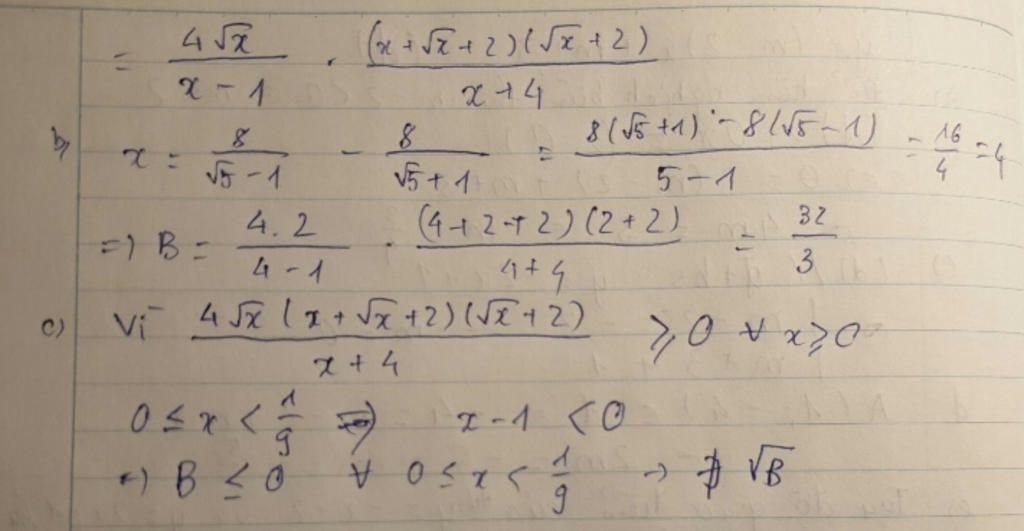 = 4√x / (x - 1) . (x + √x + 2)(√x + 2) / (x + 4)
b) x = 8 / (√5 - 1) - 8 / (√5 + 1) = (8(√5 + 1) - 8(√5 - 1)) / (5 - 1) = 16/4 = 4
=) B = 4.2 / (4 - 1) . (4 + 2 + 2)(2 + 2) / (4 + 4) = 32/3
c) Vì 4√x (x + √x + 2)(√x + 2) / (x + 4) ≥ 0 ∀ x ≥ 0
0 ≤ x < 1/9 =) x - 1 < 0
=) B ≤ 0 ∀ 0 ≤ x < 1/9 → ∄ √B